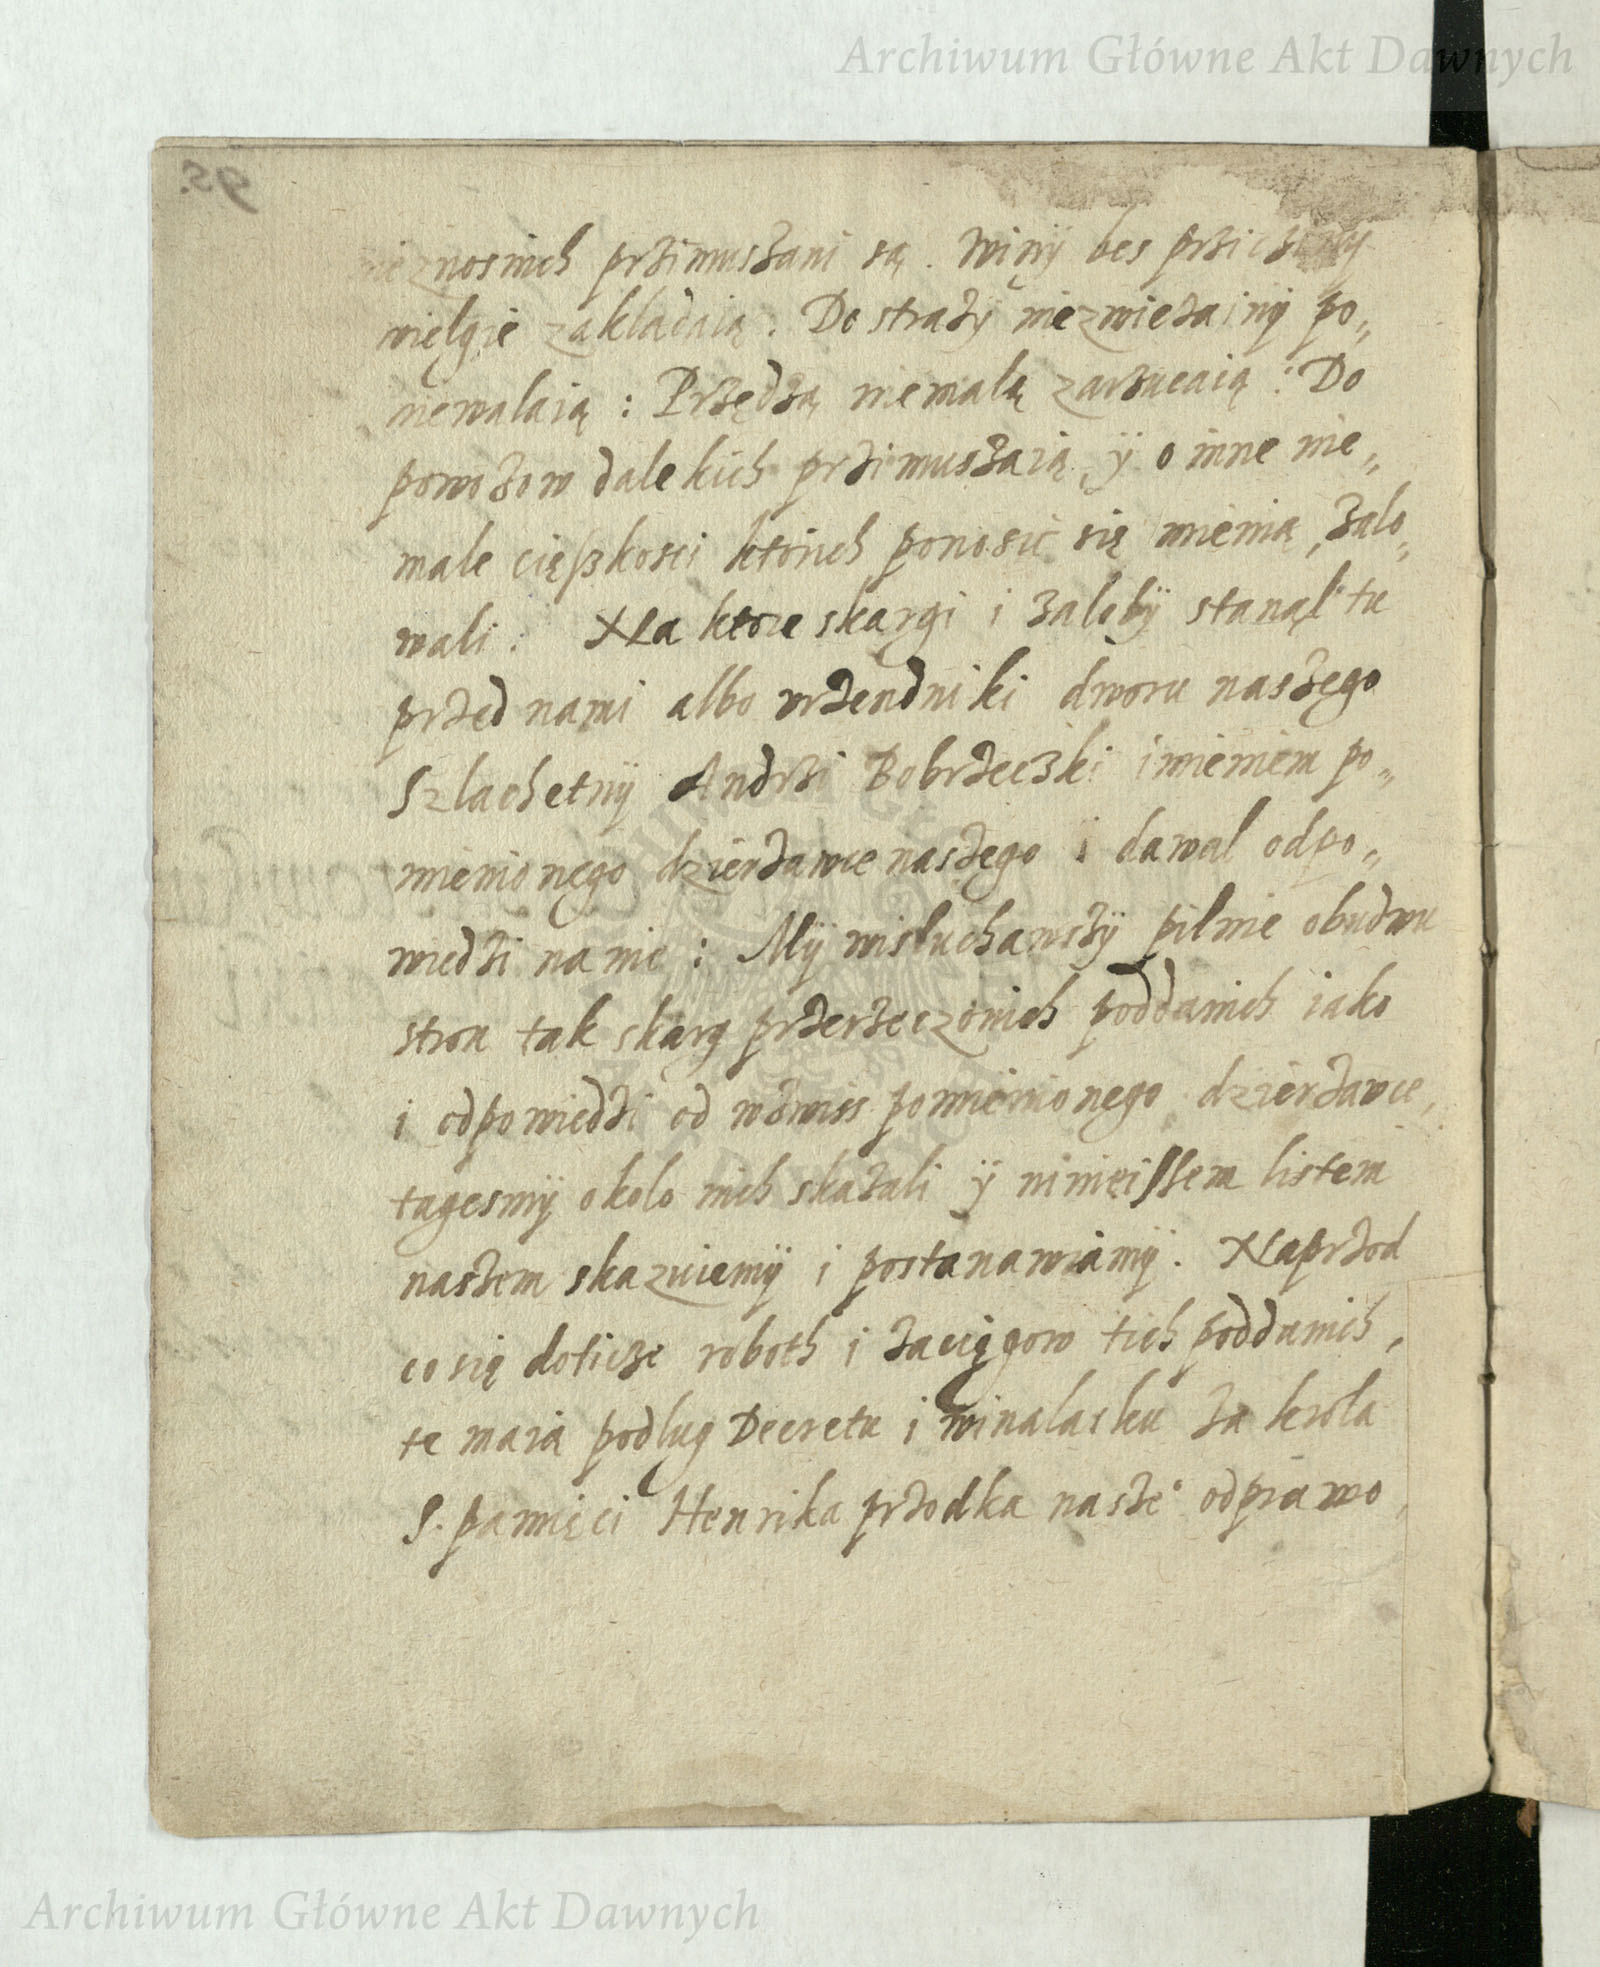 Archiwum Główne Akt Dawnych
95.
nieznosnich przimuszani są. Winÿ bes prziczinÿ
wielgie zakladaią. Do strażÿ niezwiczainÿ po„
niewalaią : Przędzą niemalą zarzucaią : Do
powozow dalekich przimuszaią, ÿ o inne nie„
male cięszkosci ktorich ponosic się mienią, żalo„
wali. Na ktore skargi i żalobÿ stanąl tu
przed nami albo urzendniki dworu naszego
Szlachetnÿ Andrzi Bobrzeczki imieniem po„
mienionego dzierzawce naszego i dawal odpo„
wiedzi na nie : Mÿ wisluchawszÿ pilnie obudwu
stron tak skarg przerzeczonich poddanich iako
i odpowiedzi od pomienionego dzierzawce,
tagesmÿ okolo nich skazali ÿ ninieiszem listem
naszem skazuiemÿ i postanawiamÿ. Naprzod
co się doticze roboth i zaciągow tich poddanich,
te maią podlug Decretu i winalasku za krola
S. pamięci Henrika przodka nasze° odprawo
Archiwum Główne Akt Dawnych